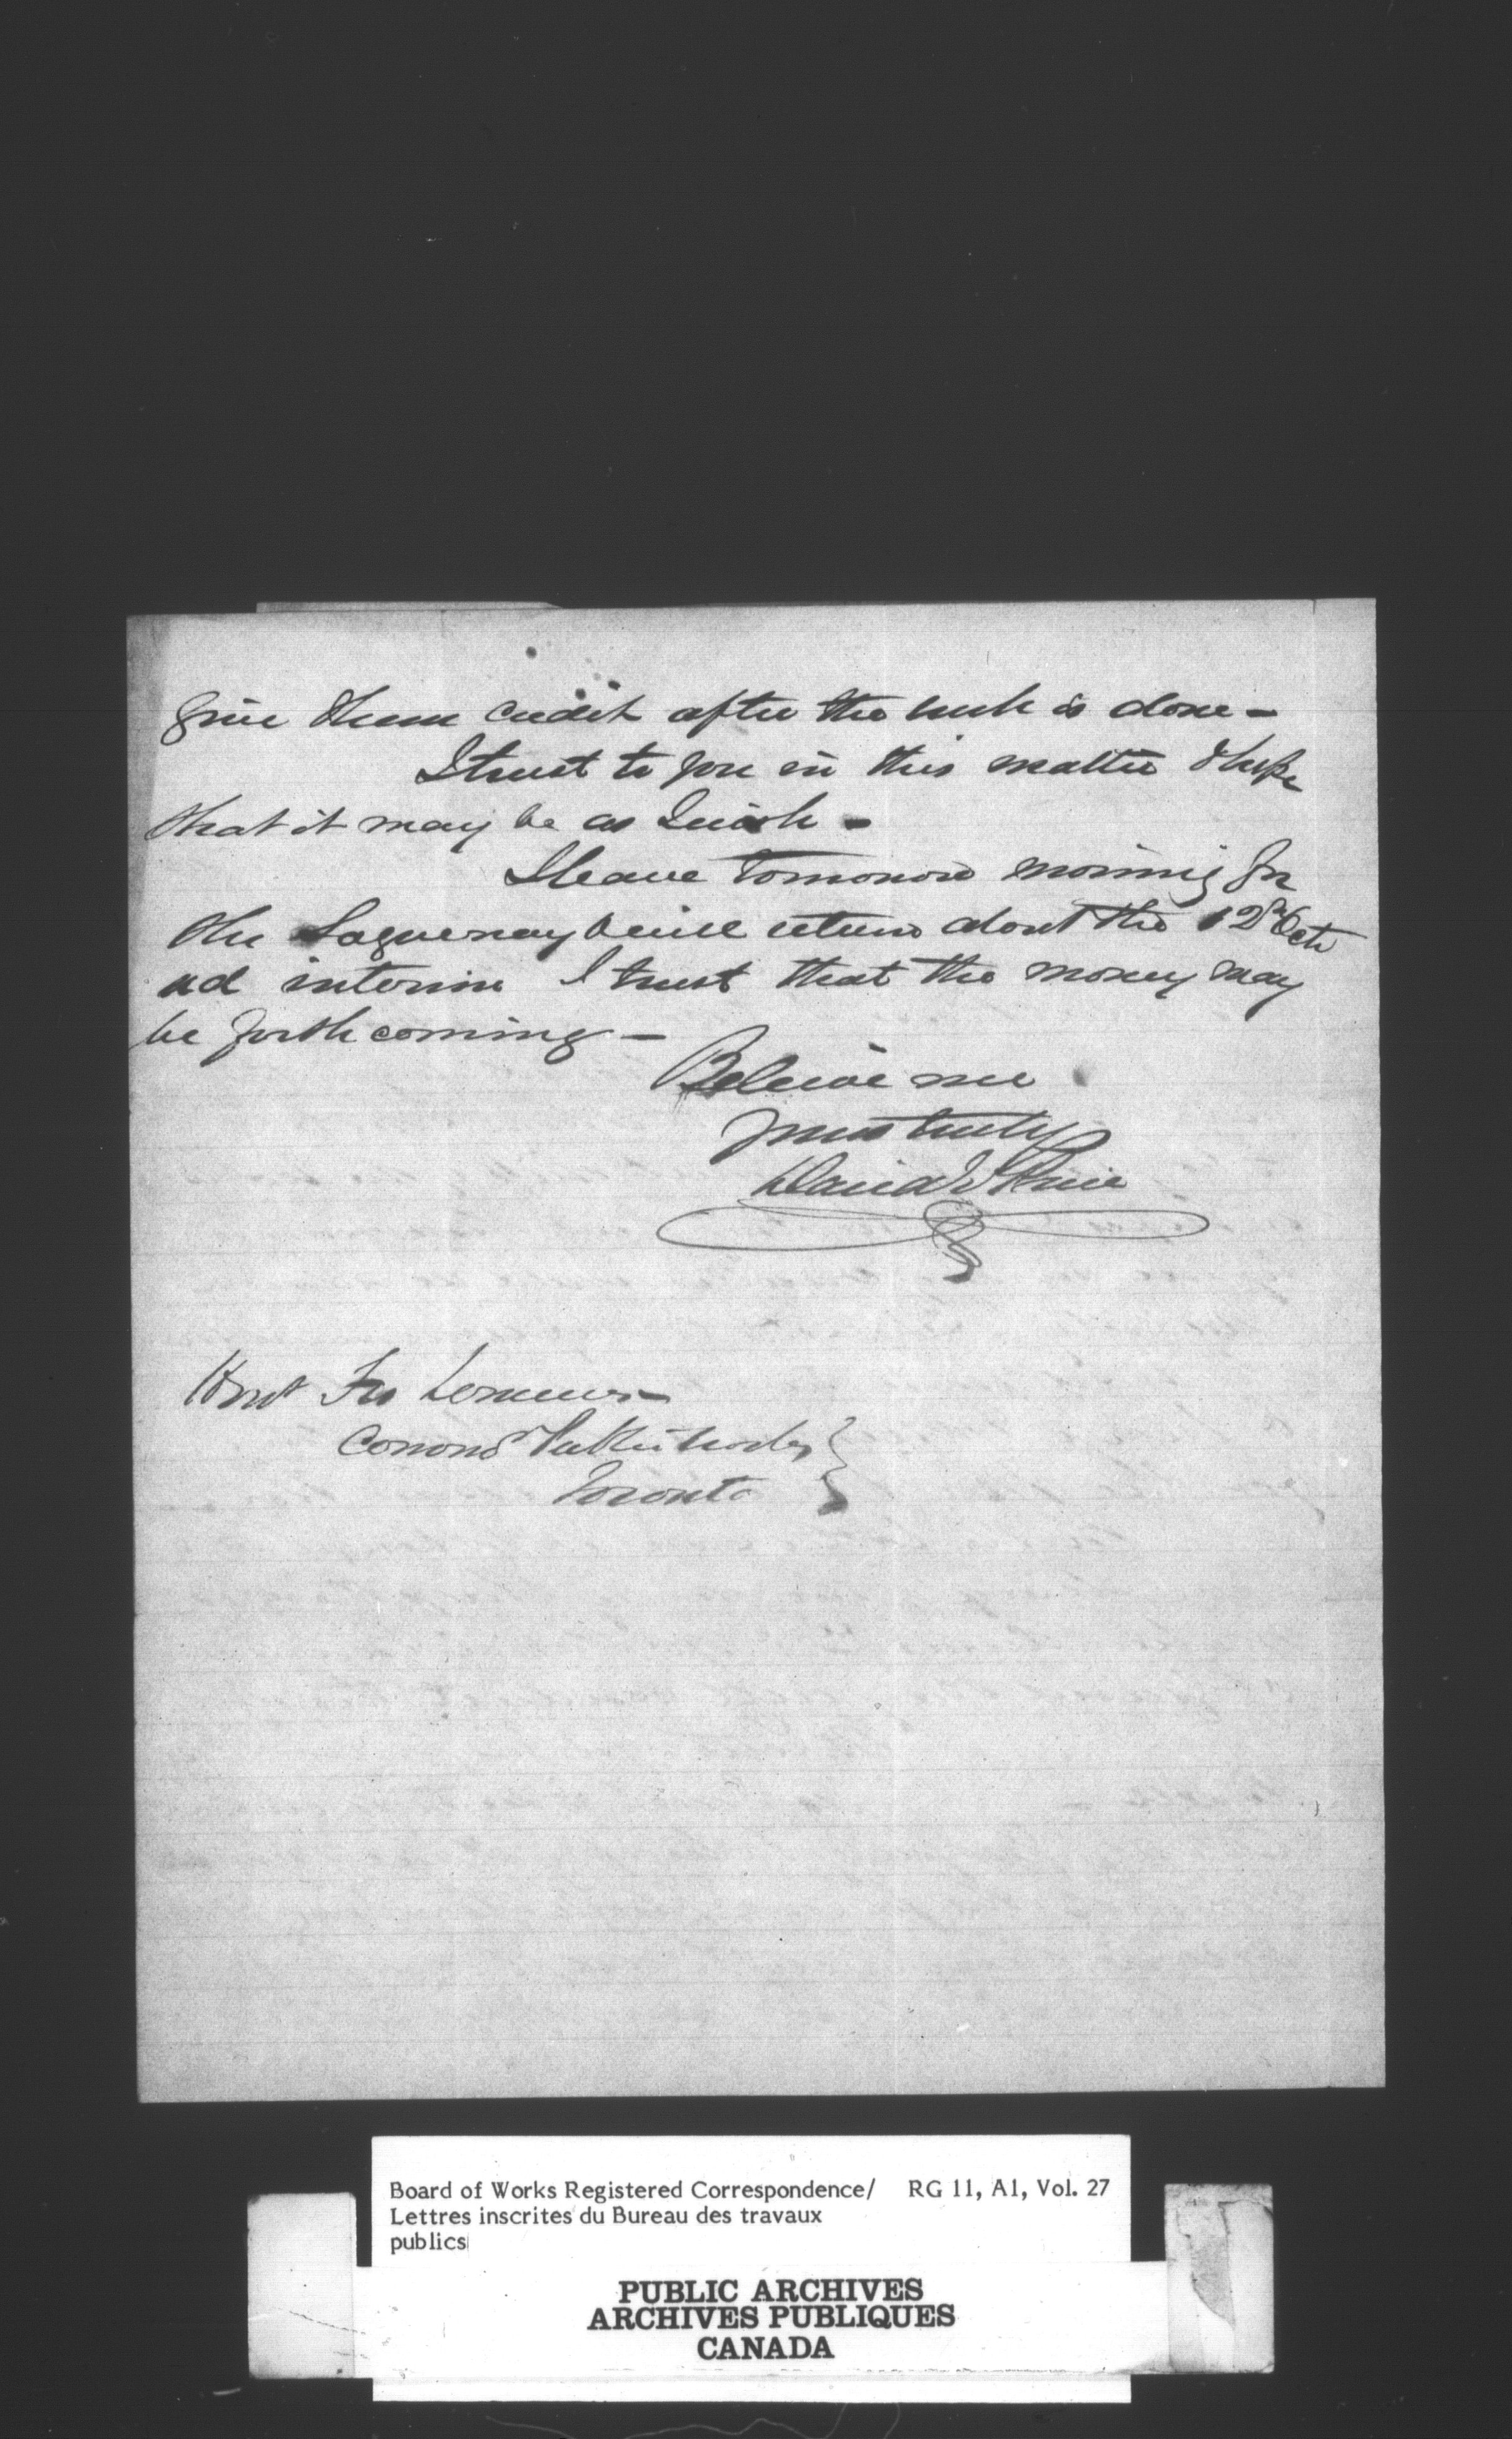 give them credit after the work is done -
I trust to you in this matter & hope
that it may be as Quick -
I leave tomorrow morning for
the Saguenay & will return about the 12th Octr
ad interim I trust that the money may
be forthcoming -
Believe me
yours truly
David E Price
Honl Frs Lemieux
Commr Public Works
Toronto
Board of Works Registered Correspondence/ RG 11, A1, Vol. 27
Lettres inscrites du Bureau des travaux
publics
PUBLIC ARCHIVES
ARCHIVES PUBLIQUES
CANADA